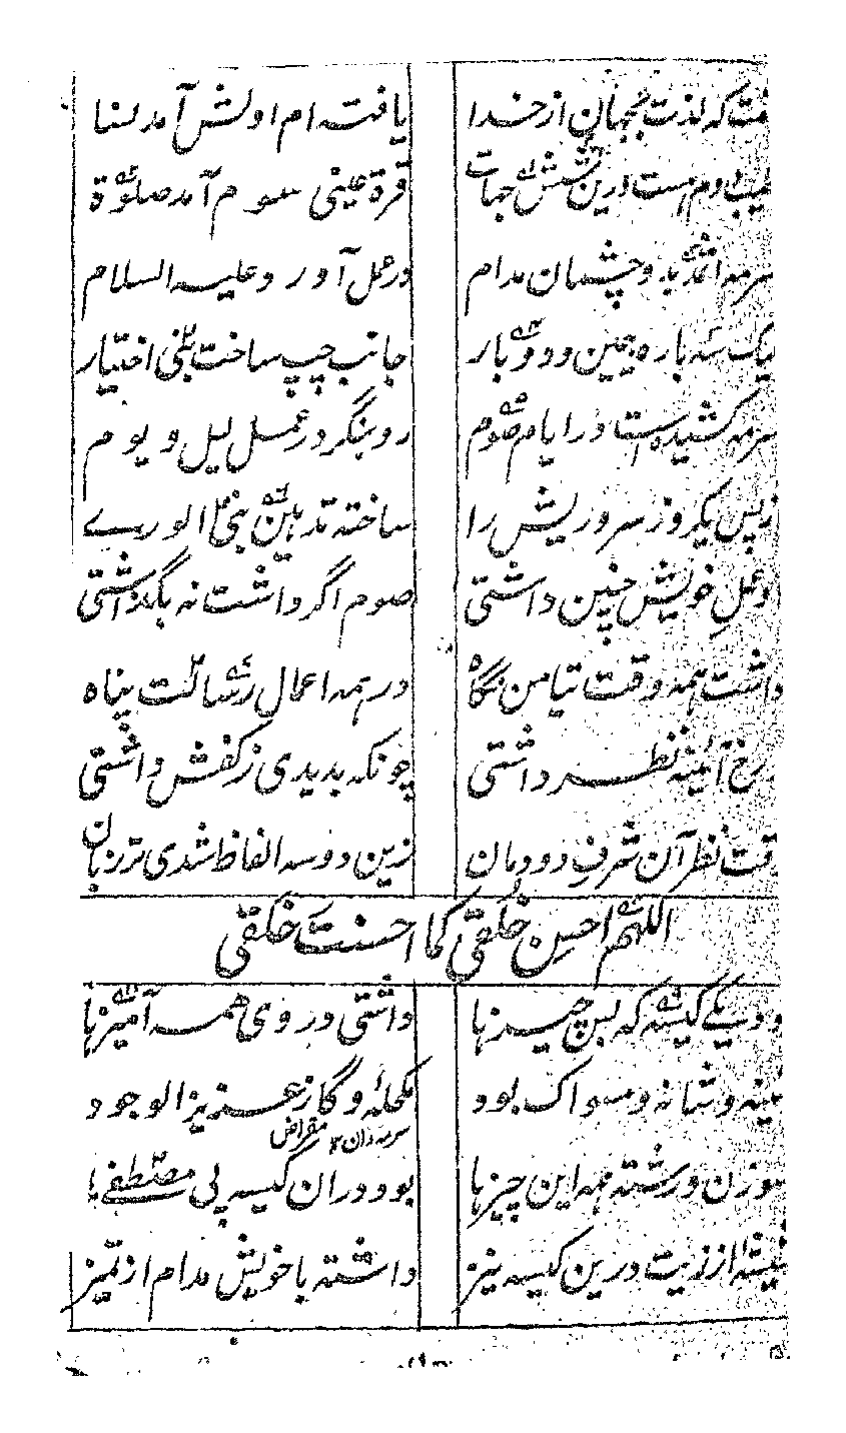 گفت که لذت بجهان از خدا یافته ام اولش آمد لنسا
طیب دوم هست درین شش جهات قرة عینی سوم آمد صلوة
سرمه اثمد بدو چشمان مدام در عمل آورد علیه السلام
لیک سه باره بیمین و دو بار جانب چپ ساخت نبی اختیار
سرمه کشیده است در ایام صوم رو بنگر در عمل لیل و یوم
زپس یکروز سر و ریش را ساخته تدهین نبی الورے
وعل خویش چنین داشتی صوم اگر داشت نه بگذاشتی
داشت همه وقت تیامن نگاه در همه اعمال رسالت پناه
رخ آئینه نظر داشتی چونکه بدیدی ز کفش داشتی
وقت نظر آن شرف دودمان زین دو سه الفاظ شدی تر زبان
اللهم احسن خلقی کما احسنت خلقی
بود یکے کیسه که بس چیزها داشتی در وی همه آمیزها
آئینه و شانه و مسواک بود مکحله و گاز عزیز الوجود
سرمه دان ۱۲ مقراض
سوزن و رشته همه این چیزها بود دران کیسه پی مصطفے
شیشه از زیت درین کیسه نیز داشته با خویش مدام از تمیز